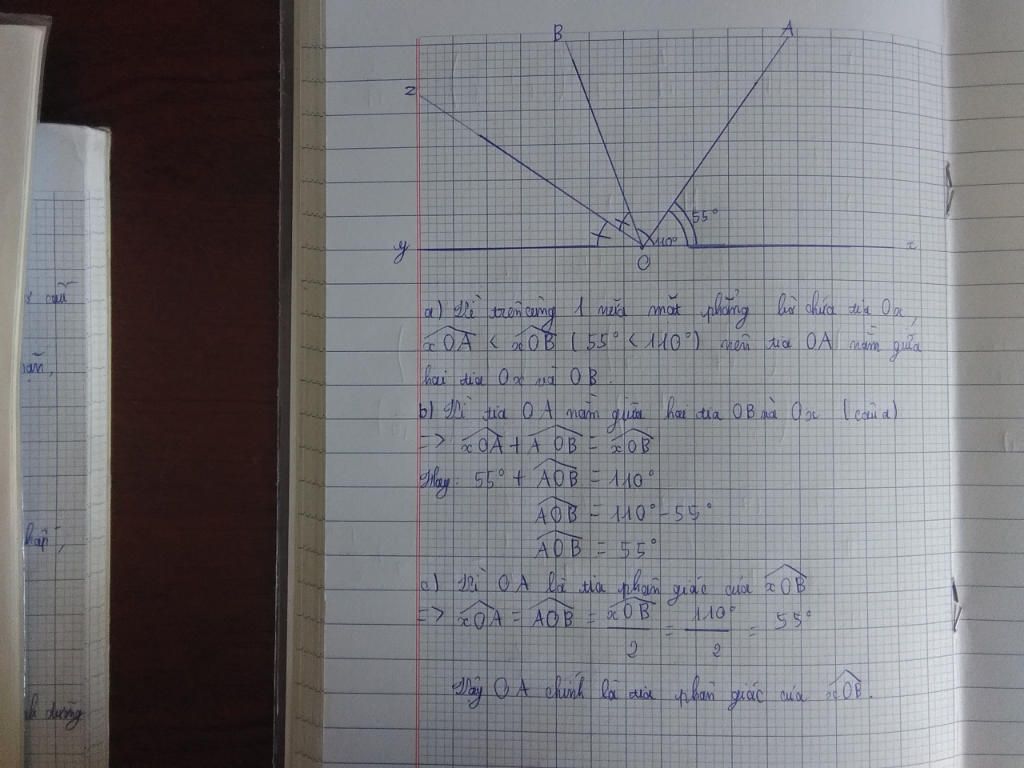 B
A
z
55°
110°
y
x
O
a) Vì trên cùng 1 nửa mặt phẳng bờ chứa tia Ox,
xOA < xOB (55° < 110°) nên tia OA nằm giữa
hai tia Ox và OB.
b) Vì tia OA nằm giữa hai tia OB và Ox (câu a)
=> xOA + AOB = xOB
Hay: 55° + AOB = 110°
AOB = 110° - 55°
AOB = 55°
c) Vì OA là tia phân giác của xOB
=> xOA = AOB = xOB/2 = 110°/2 = 55°
Vậy OA chính là tia phân giác của xOB.
dưỡng